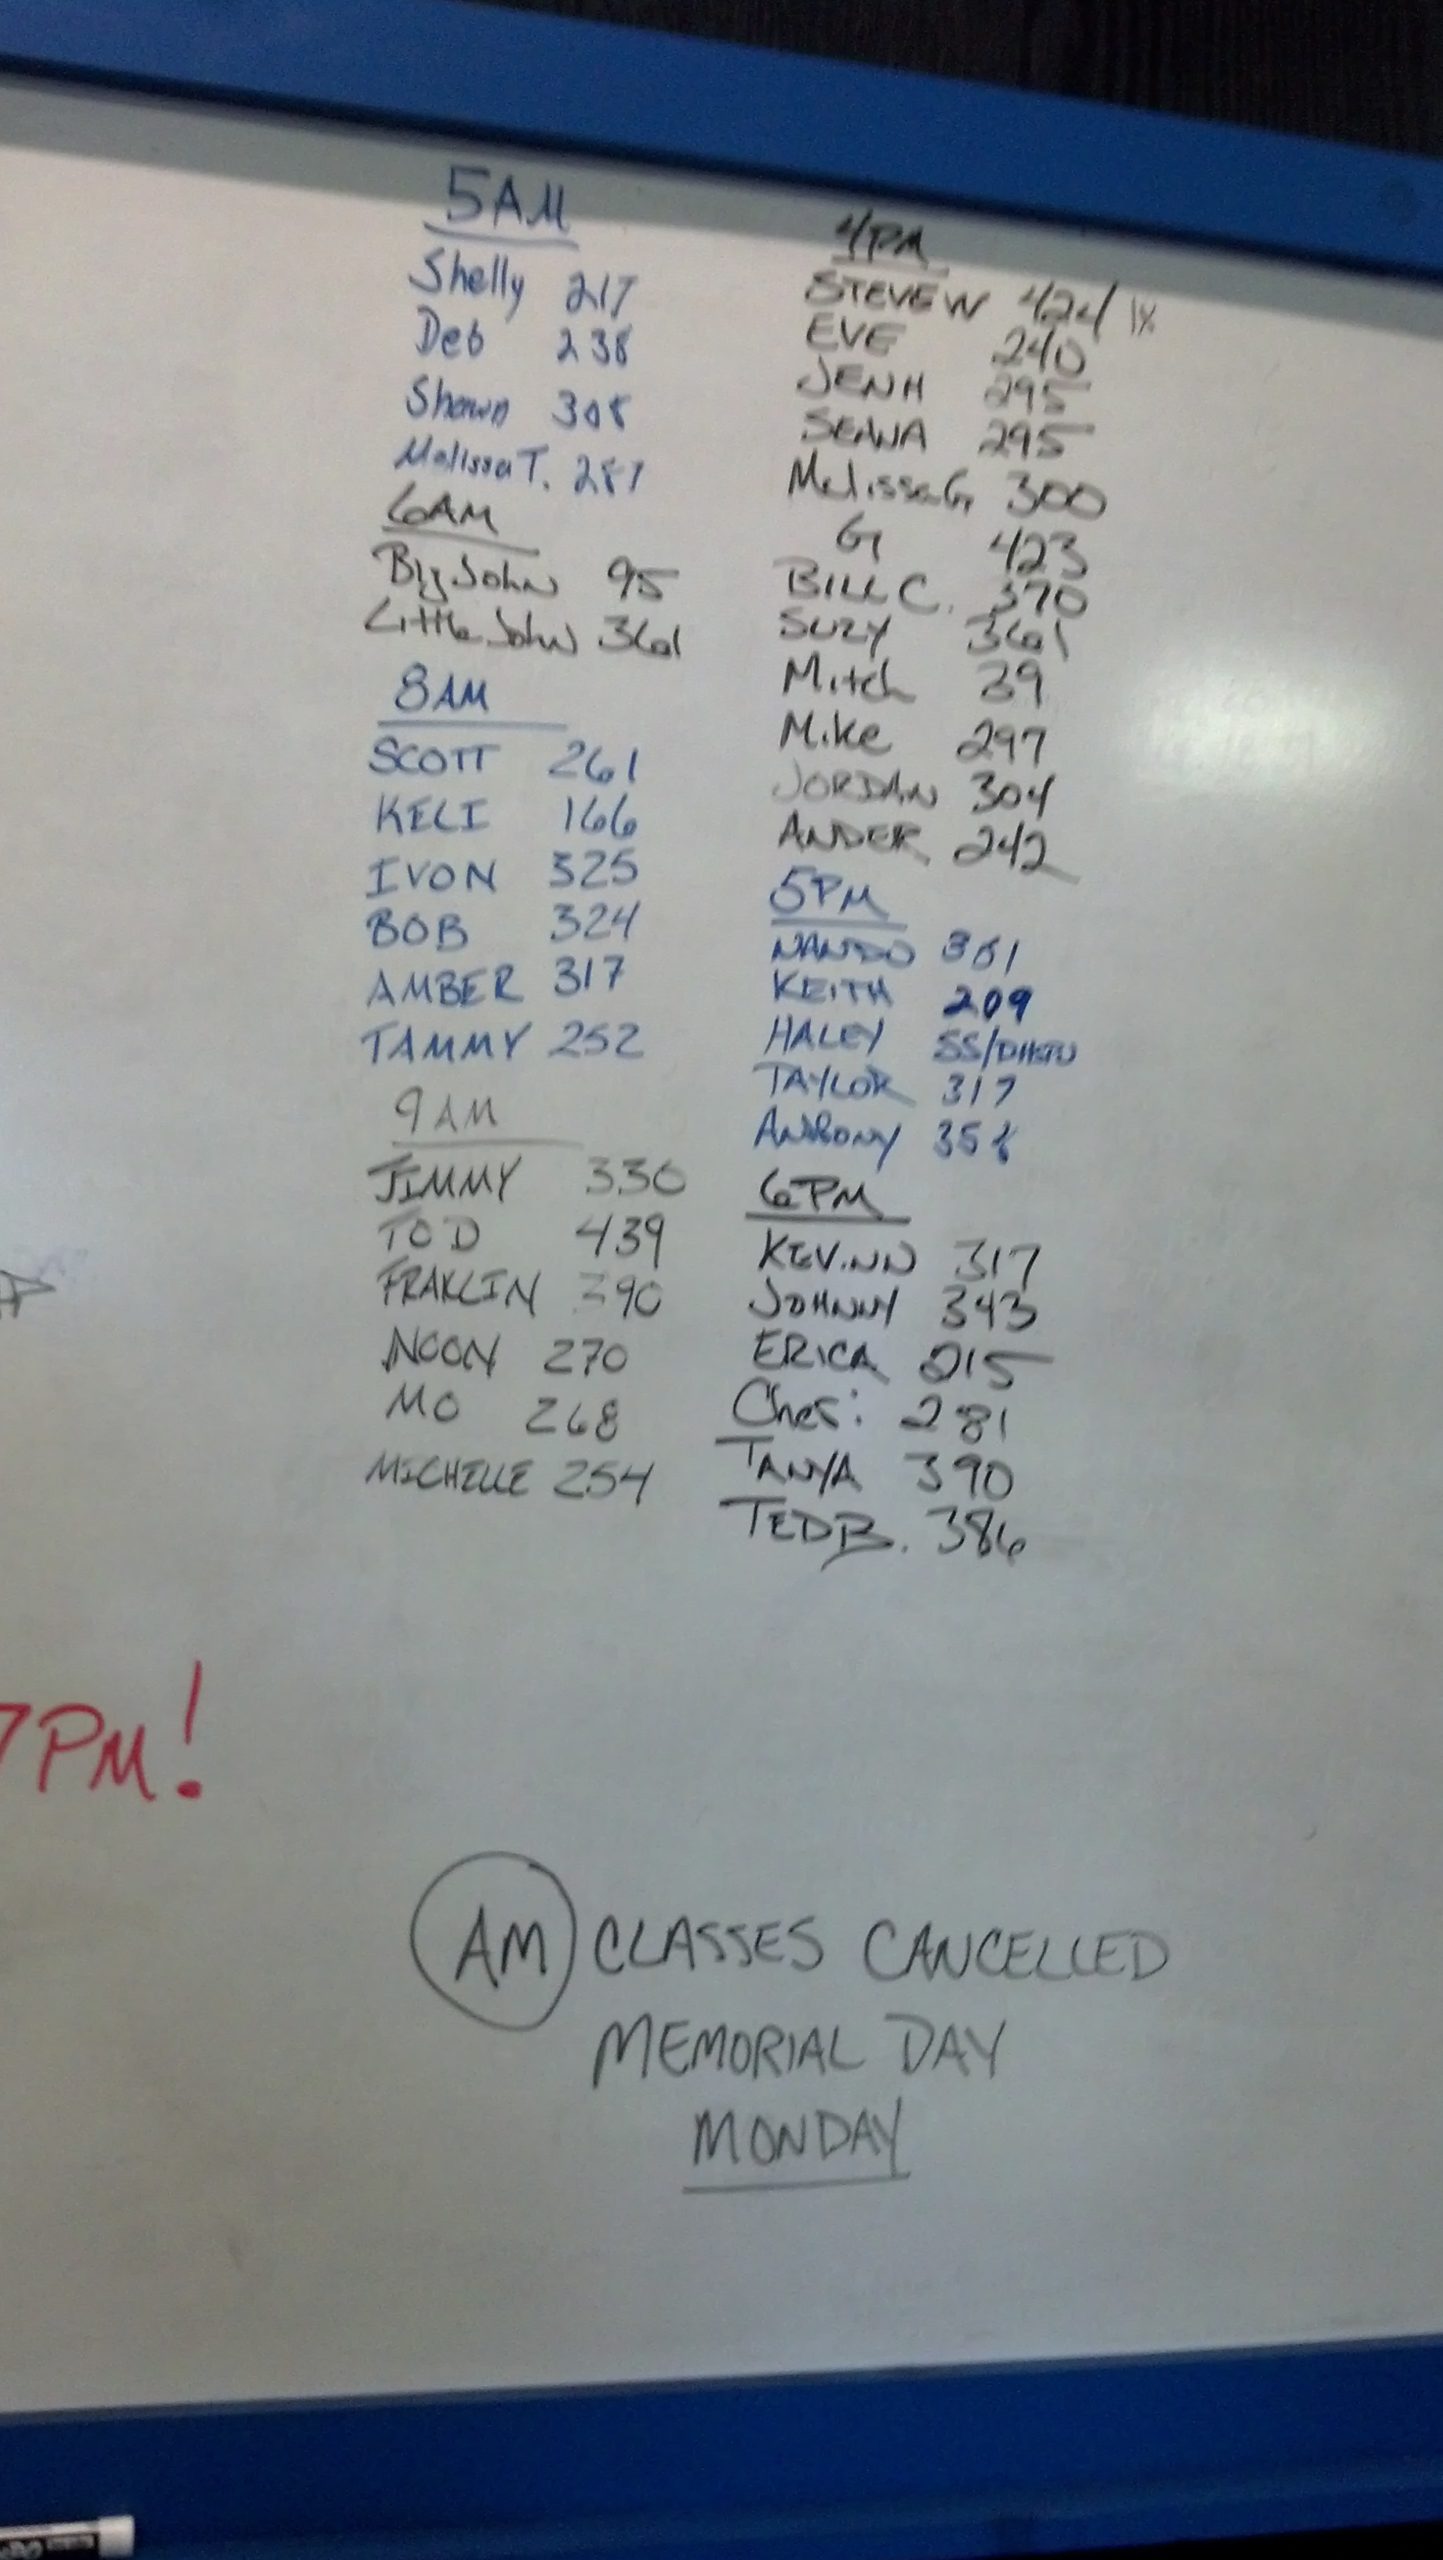 5AM
Shelly 217
Deb 238
Shawn 308
Melissa T. 287
6AM
Big John 95
Little John 361
8AM
SCOTT 261
KELI 166
IVON 325
BOB 324
AMBER 317
TAMMY 252
9AM
JIMMY 330
TOD 439
FRAKLIN 390
NOON 270
MO 268
MICHELLE 254
4PM
STEVE W 424 1X
EVE 240
JEN H 295
SEANA 295
Melissa G 300
G 423
BILL C. 370
SUZY 361
Mitch 39
Mike 297
JORDAN 304
ANDER 242
5PM
NANDO 361
KEITH 209
HALEY SS/
TAYLOR 317
ANTHONY 358
6PM
KEVINN 317
JOHNNY 343
ERICA 215
Cheri 281
TANYA 390
TED B. 386
7PM!
AM CLASSES CANCELLED
MEMORIAL DAY
MONDAY